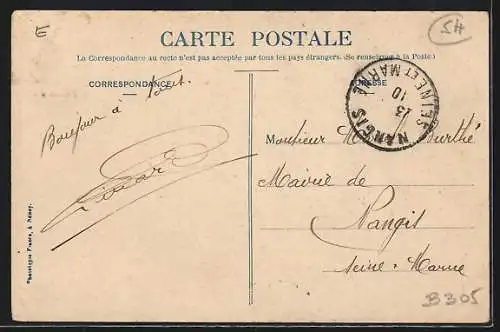 E
54
CARTE POSTALE
La Correspondance au recto n'est pas acceptée par tous les pays étrangers. (Se renseigner à la Poste)
CORRESPONDANCE
ADRESSE
NANGIS
SEINE ET MARNE
10
23
Bonjour à tous.
Monsieur
Mairie de
Nangis
Seine & Marne
Phototypie France, à Nancy.
B305